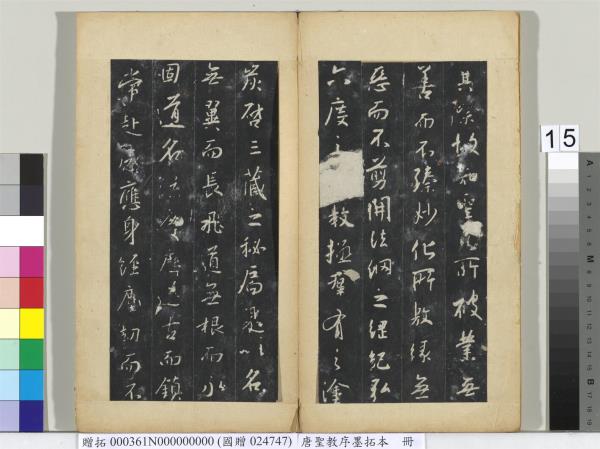 其際故知聖慈所被業無
善而不臻妙化所敷緣無
惡而不剪開法網之綱紀弘
六度之教拯群有之塗
炭啓三藏之秘扃是以名
無翼而長飛道無根而永
固道名流慶歷遂古而鎮
常赴感應身經塵劫而不
15
贈拓 000361N000000000 (國贈 024747) 唐聖教序墨拓本 冊